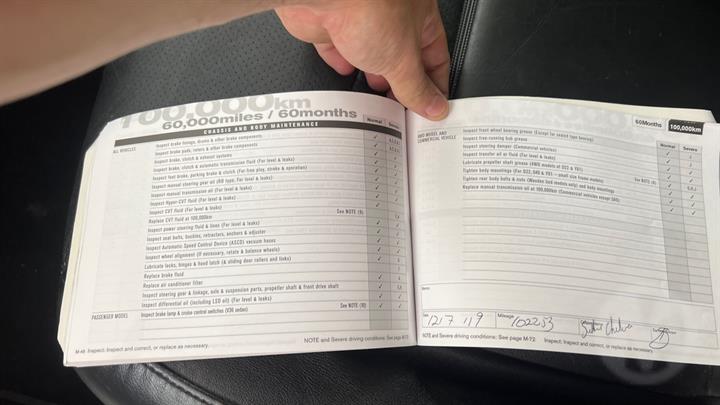 100,000km
60,000miles / 60months
Normal
CHASSIS AND BODY MAINTENANCE
ALL VEHICLES
Inspect brake linings, drums & other brake components
Inspect brake pads, rotors & other brake components
Inspect brake, clutch & exhaust systems
Inspect brake, clutch & automatic transmission fluid (For level & leaks)
Inspect foot brake, parking brake & clutch (For free play, stroke & operation)
Inspect manual steering gear oil (RB type, For level & leaks)
Inspect manual transmission oil (For level & leaks)
Inspect Hyper-CVT fluid (For level & leaks)
Inspect CVT fluid (For level & leaks)
Replace CVT fluid at 100,000km
See NOTE (9)
Inspect power steering fluid & lines (For level & leaks)
Inspect seat belts, buckles, retractors, anchors & adjuster
Inspect Automatic Speed Control Device (ASCD) vacuum hoses
Inspect wheel alignment (If necessary, rotate & balance wheels)
Lubricate locks, hinges & hood latch (& sliding door rollers and links)
Replace brake fluid
Replace air conditioner filter
Inspect steering gear & linkage, axle & suspension parts, propeller shaft & front drive shaft
Inspect differential oil (including LSD oil) (For level & leaks)
See NOTE (10)
PASSENGER MODEL
Inspect brake lamp & cruise control switches (V36 sedan)
NOTE and Severe driving conditions: See page M-72
Inspect: Inspect and correct, or replace as necessary.
60Months
100,000km
4WD MODEL AND
COMMERCIAL VEHICLE
Normal
Severe
Inspect front wheel bearing grease (Except for sealed type bearing)
Inspect free-running hub grease
Inspect steering damper (Commercial vehicles)
Inspect transfer oil or fluid (For level & leaks)
Lubricate propeller shaft grease (4WD models of D22 & Y61)
Tighten body mountings (For D22, D40 & Y61 - small size frame models)
See NOTE (8)
Tighten rear body bolts & nuts (Wooden bed models only) and body mountings
Replace manual transmission oil at 100,000km (Commercial vehicles except D40)
Memo
1217 119
Mileage
102253
NOTE and Severe driving conditions: See page M-72.
Inspect: Inspect and correct, or replace as necessary.